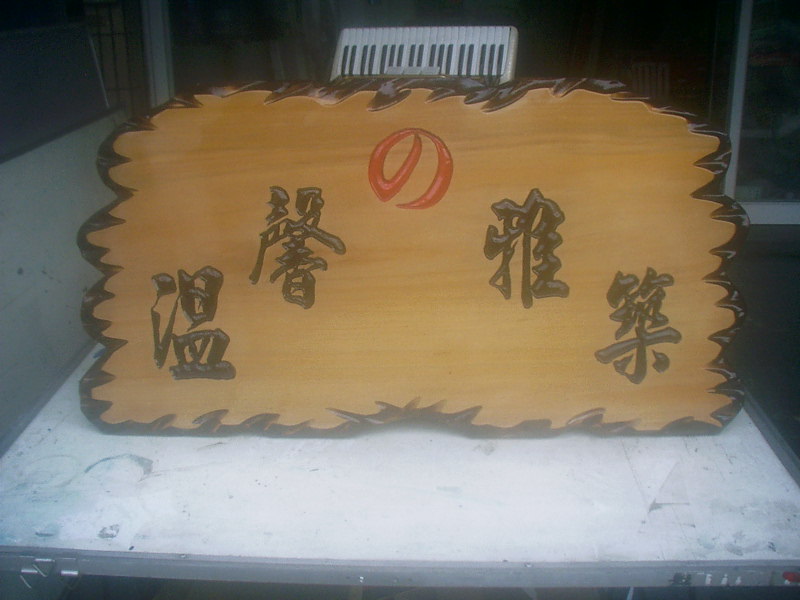 溫馨の雅築